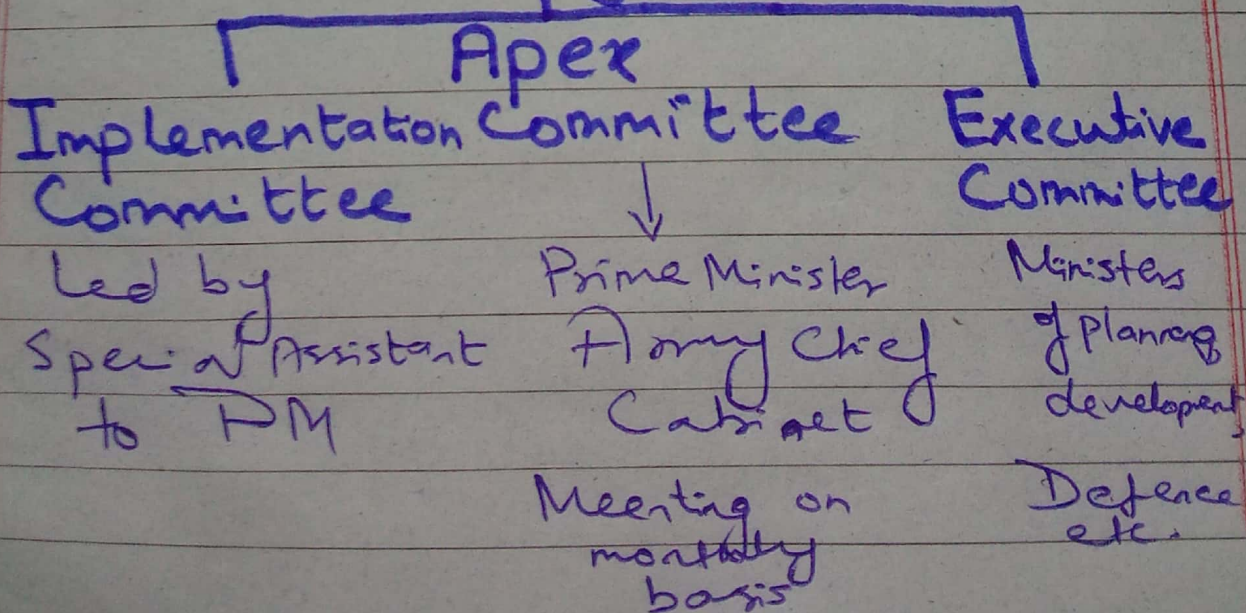 Apex
Implementation Committee
Committee
Led by
Special Assistant
to PM
Prime Minister
Army Chief
Cabinet
Meeting on
monthly
basis
Executive
Committee
Ministers
of planning
development,
Defence
etc.